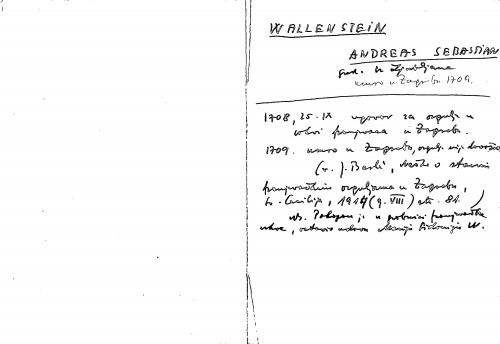 WALLENSTEIN
ANDREAS SEBASTIAN
grad. iz Ljubljane
umro u Zagrebu 1709.
1708, 25. IX ugovor za orgulje u
crkvi franjevaca u Zagrebu.
1709. umro u Zagrebu, orgulje nije dovršio
(v. J. Barlé, o starim
franjevačkim orguljama u Zagrebu,
Sv. Cecilija, 1914 (g. VIII) str. 81.
Nb. Pokopan je u grobnici franjevačke
crkve, ostavio udovu Mariju W.